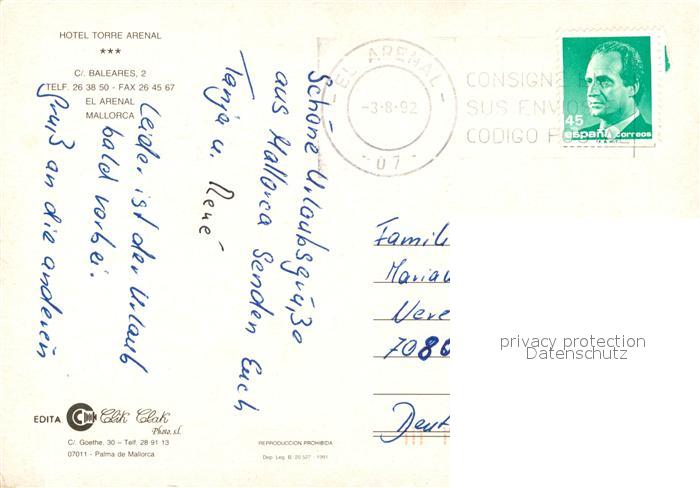 HOTEL TORRE ARENAL
***
C/. BALEARES, 2
TELF. 26 38 50 - FAX 26 45 67
EL ARENAL
MALLORCA
EL ARENAL
-3-8-92
- 07 -
CONSIGNE E
SUS ENVIOS
CODIGO POSTAL
45
españa correos
Schöne Urlaubsgrüße
aus Mallorca senden Euch
Tanja u. René
Leider ist der Urlaub
bald vorbei.
Gruß an die anderen
Famil
Maria
Were
7086
Deut
privacy protection
Datenschutz
EDITA
Clik Clak
Photo, s.l.
C/. Goethe, 30 – Telf. 28 91 13
07011 - Palma de Mallorca
REPRODUCCION PROHIBIDA
Dep. Leg. B. 20.527 - 1991